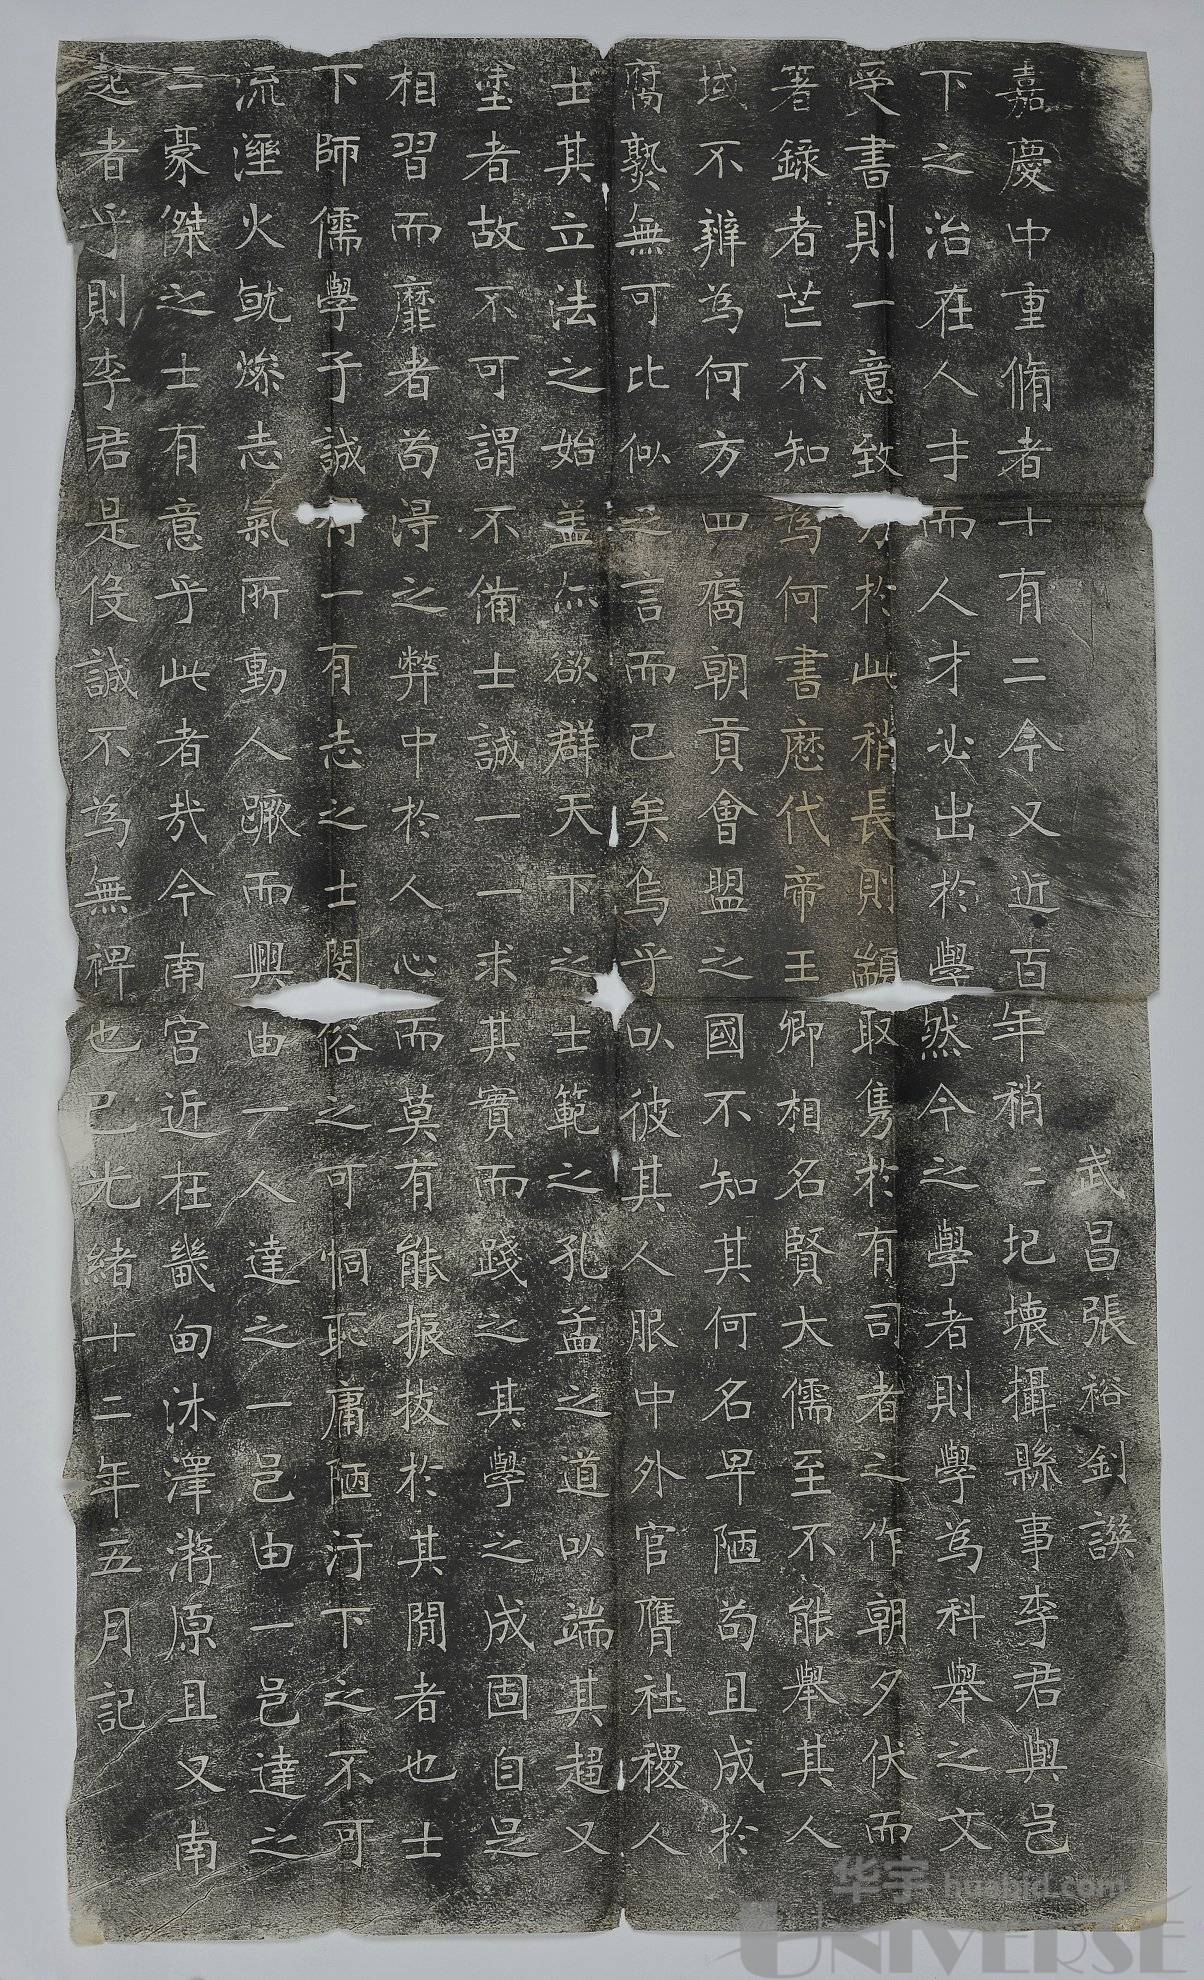 武昌張裕釗譔
嘉慶中重脩者十有二今又近百年稍二圮壞攝縣事李君與邑
下之治在人才而人才必出於學然今之學者則學為科舉之文
受書則一意致力於此稍長則顓取雋於有司者之作朝夕伏而
著錄者芒不知為何書歷代帝王卿相名賢大儒至不能舉其人
域不辨為何方四裔朝貢會盟之國不知其何名卑陋苟且成於
腐熟無可比似之言而已矣烏乎以彼其人服中外官膺社稷人
士其立法之始盖亦欲群天下之士範之孔孟之道以端其趨又
塗者故不可謂不備士誠一一求其實而踐之其學之成固自足
相習而靡者苟得之弊中於人心而莫有能振拔於其間者也士
下師儒學子誠有一有志之士閔俗之可恫恥庸陋汙下之不可
流溼火就燥志氣所動人蹶而興由一人達之一邑由一邑達之
二豪傑之士有意乎此者哉今南宮近在畿甸沐澤游原且又南
起者乎則李君是役誠不為無裨也已光緒十二年五月記
华宇 huabid.com
UNIVERSE